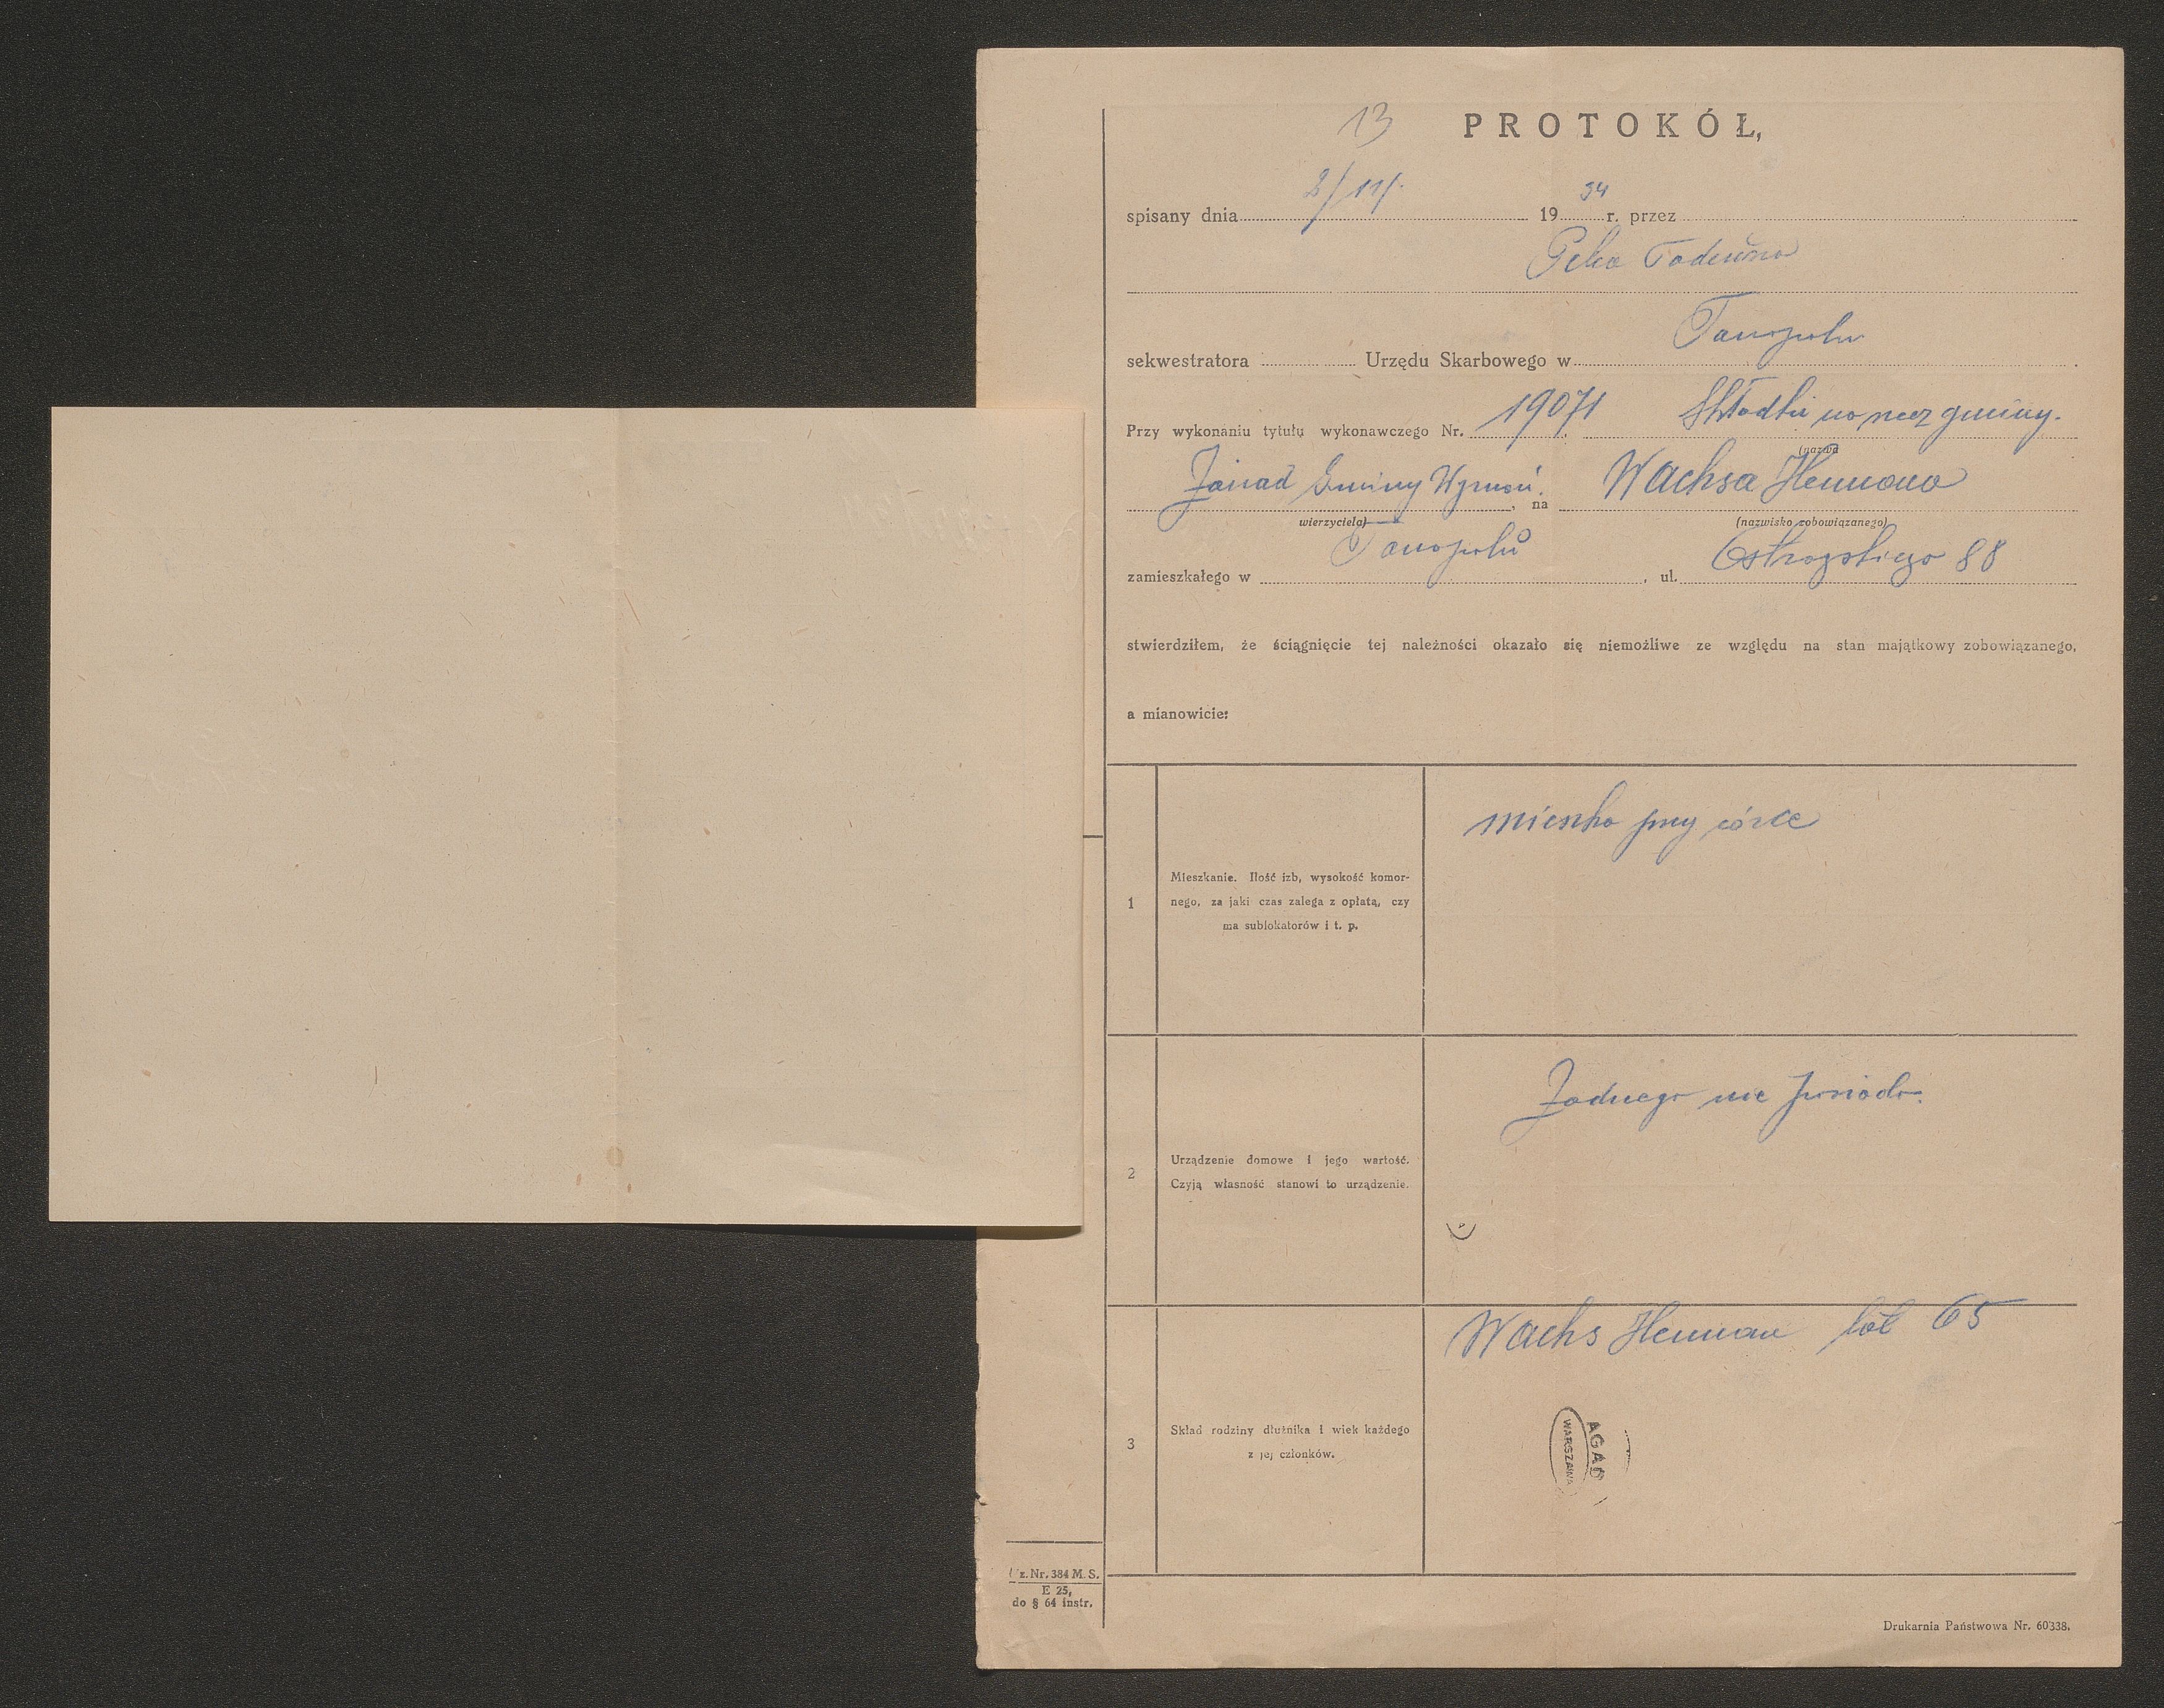 13
PROTOKÓŁ,
spisany dnia 2/11/. 1934 r. przez
Tadeusza
sekwestratora Urzędu Skarbowego w Tarnopolu .
Przy wykonaniu tytułu wykonawczego Nr. 19071 Składki na rzecz gminy.
(nazwa
Zarząd Gminy Wyznań. , na Wachsa Hermana
wierzyciela) (nazwisko zobowiązanego)
zamieszkałego w Tarnopolu , ul. Ostrogskiego 88
stwierdziłem, że ściągnięcie tej należności okazało się niemożliwe ze względu na stan majątkowy zobowiązanego,
a mianowicie:
1
Mieszkanie. Ilość izb, wysokość komor-
nego, za jaki czas zalega z opłatą, czy
ma sublokatorów i t. p.
mieszka przy córce
2
Urządzenie domowe i jego wartość.
Czyją własność stanowi to urządzenie.
Żadnego nie posiada.
3
Skład rodziny dłużnika i wiek każdego
z jej członków.
Wachs Herman lat 65
AGAD
WARSZAWA
z. Nr. 384 M. S.
E 25,
do § 64 instr.
Drukarnia Państwowa Nr. 60338.